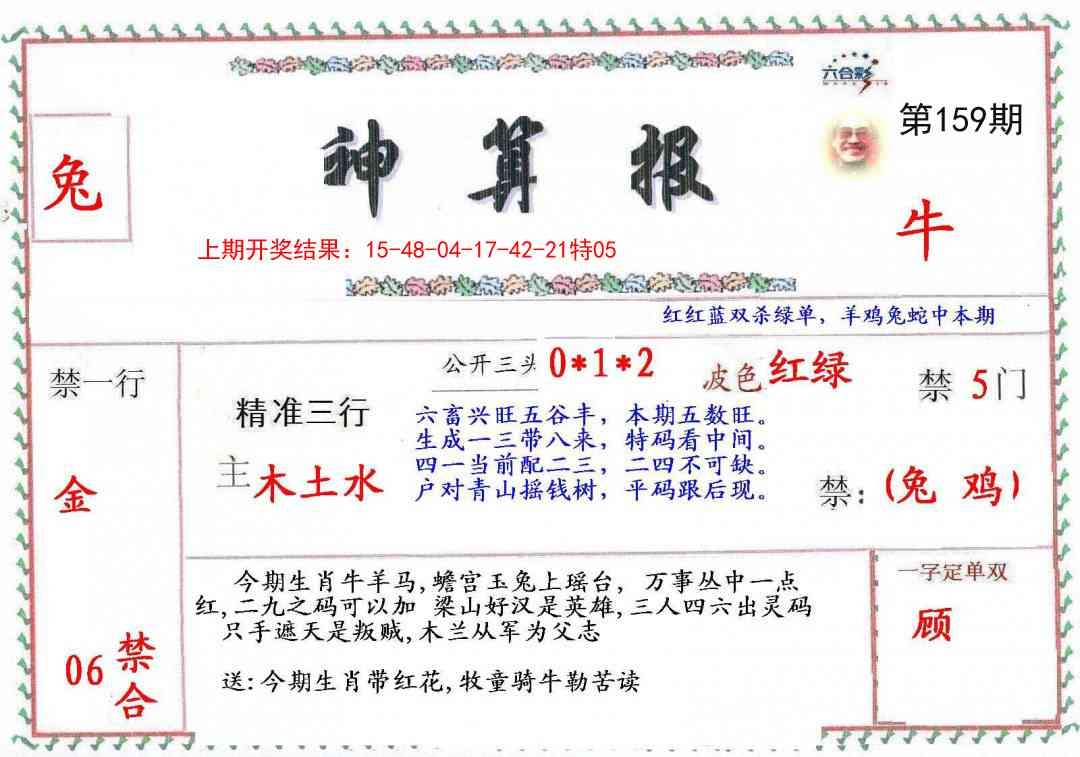 六合彩
第159期
兔
神算报
牛
上期开奖结果：15-48-04-17-42-21特05
红红蓝双杀绿单，羊鸡兔蛇中本期
禁一行
金
06禁合
公开三头 0*1*2 波色红绿
精准三行
主木土水
六畜兴旺五谷丰，本期五数旺。
生成一三带八来，特码看中间。
四一当前配二三，二四不可缺。
户对青山摇钱树，平码跟后现。
禁5门
禁：(兔 鸡)
今期生肖牛羊马,蟾宫玉兔上瑶台，万事丛中一点
红,二九之码可以加 梁山好汉是英雄,三人四六出灵码
只手遮天是叛贼,木兰从军为父志
送:今期生肖带红花,牧童骑牛勒苦读
一字定单双
顾